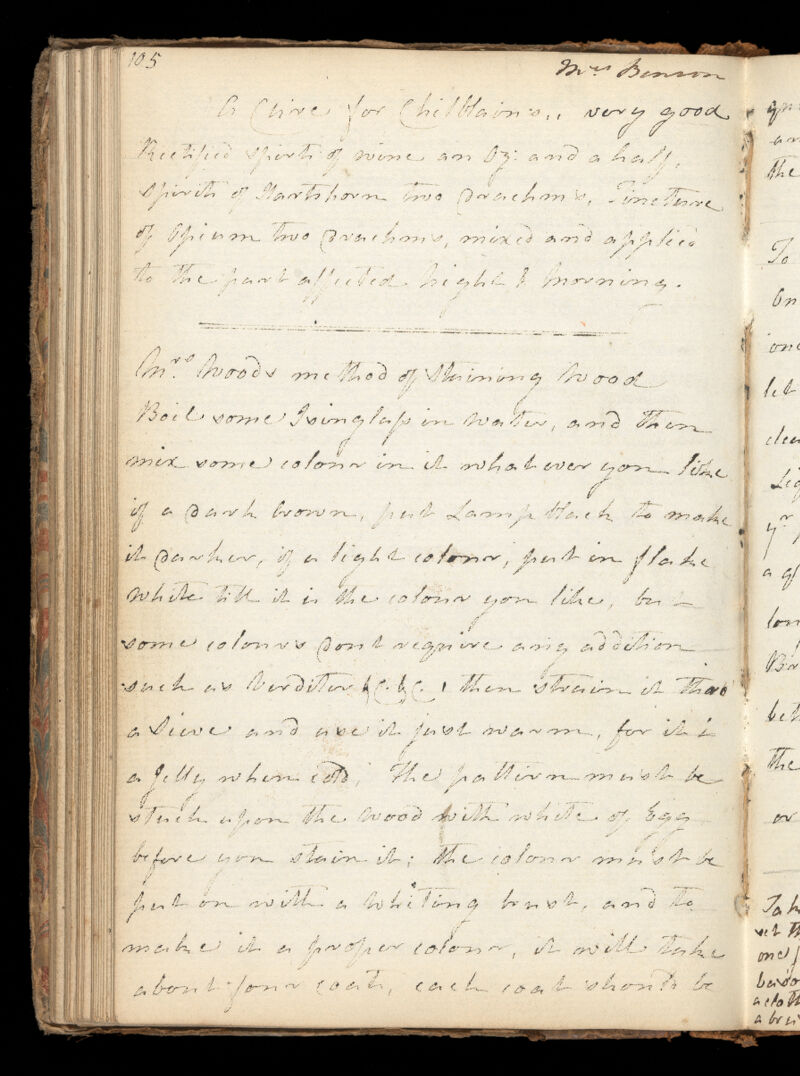 105
Mrs Benson
A Cure for Chilblains,, very good
Rectified spirits of wine an Oz: and a half,
spirits of Hartshorn two Drachms, Tincture
of Opium two Drachms, mixed and applied
to the part affected Night & Morning.
Mrs. Woods method of Staining Wood
Boil some Isinglass in Water, and then
mix some colour in it whatever you like
if a Dark brown, put Lamp black to make
it Darker, if a light colour, put in flake
White till it is the colour you like, but
some colours Dont require any addition
such as Verditer &C. &C. then strain it thro
a Sieve and use it just warm, for it is
a Jelly when cold; The pattern must be
stuck upon the Wood with white of Egg
before you stain it; the colour must be
put on with a Whiting brush, and to
make it a proper colour, it will take
about four coats, each coat should be
qu
an
the
To
On
one
let
clea
Lig
yr
a q
lon
Br
bet
the
or
Tak
set th
one
baso
a cloth
a bru